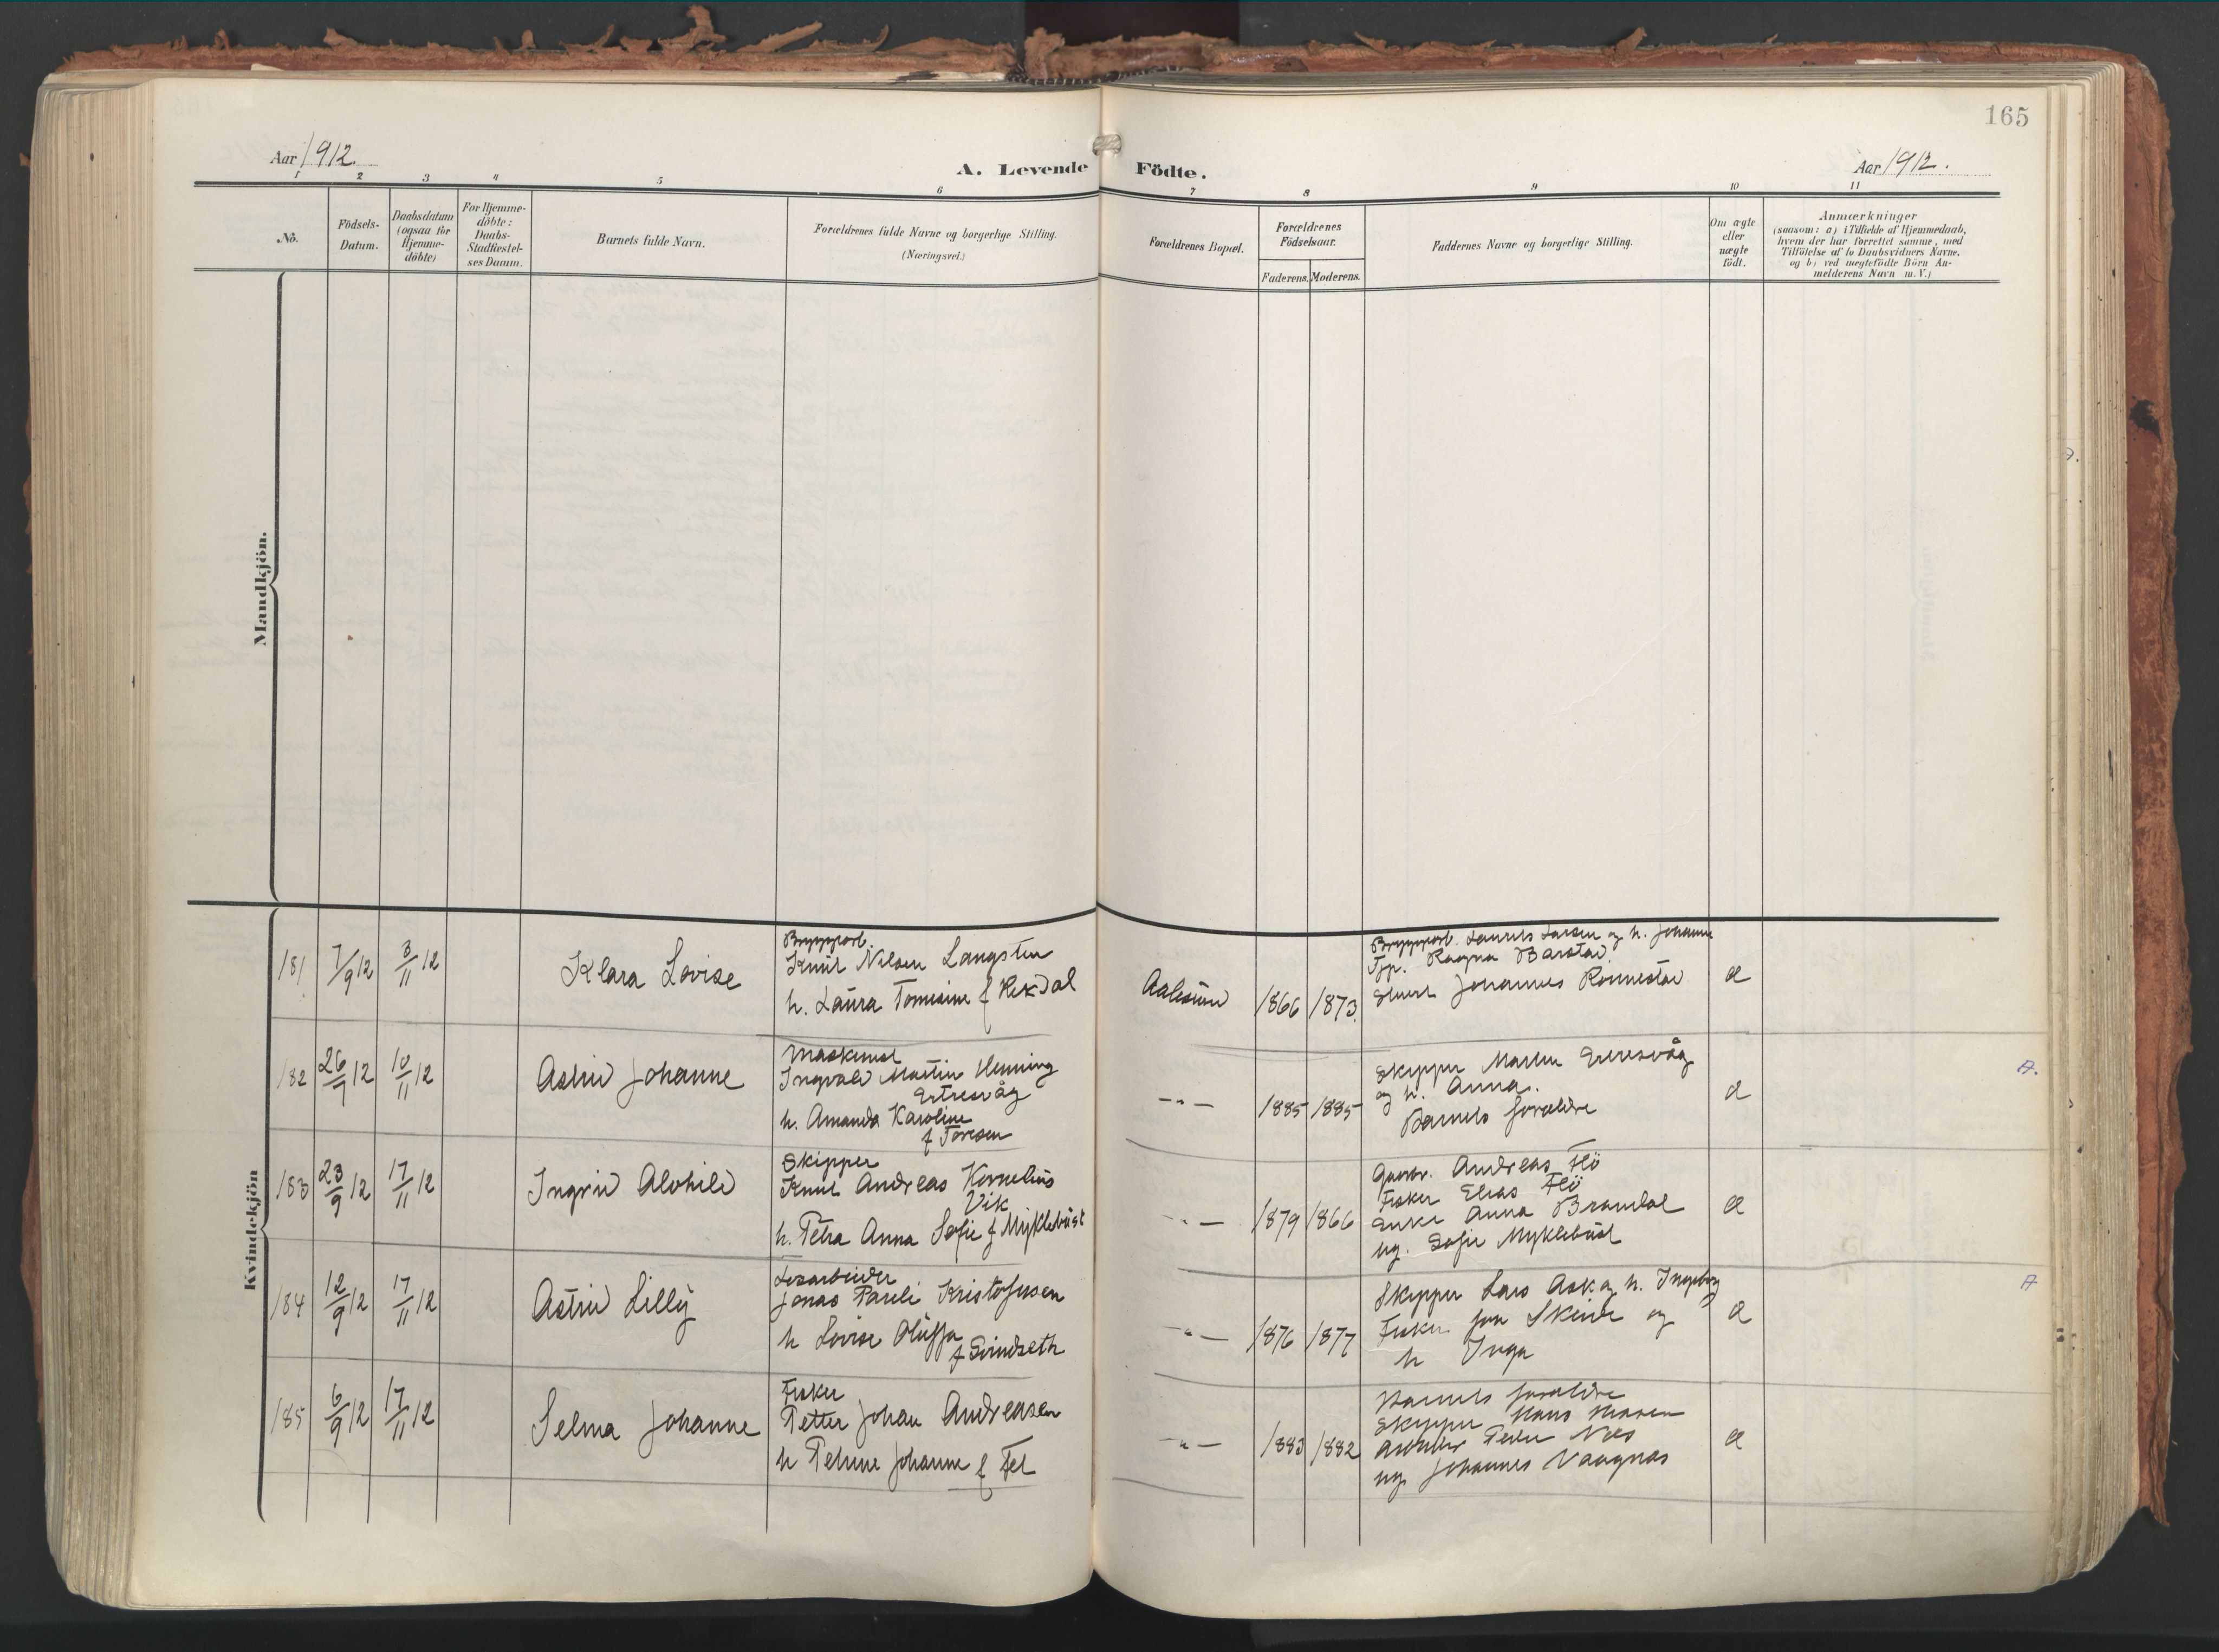 165
Aar 1912.
A. Levende Födte.
Aar 1912.
1 2 3 4 5 6 7 8 9 10 11
No.
Födsels-
Datum.
Daabsdatum
(ogsaa for
Hjemme-
döbte)
For Hjemme-
döbte:
Daabs-
Stadfæstel-
ses Datum.
Barnets fulde Navn.
Forældrenes fulde Navne og borgerlige Stilling.
(Næringsvei.)
Forældrenes Bopæl.
Forældrenes
Födselsaar.
Faderens. Moderens.
Faddernes Navne og borgerlige Stilling.
Om ægte
eller
uægte
födt.
Anmærkninger
(saasom: a) i Tilfælde af Hjemmedaab,
hvem der har forrettet samme, med
Tilföielse af to Daabsvidners Navne,
og b) ved uægtefödte Börn An-
melderens Navn m.V.)
Mandkjön.
Kvindekjön
181 7/9 12 3/11 12 Klara Lovise
Knut Nilsen Langsten
h. Laura Tomesine f Rekdal
Aalesund 1866 1873
Bryggearb. Laurits Larsen og h. Johanne
Ragna Barstad
Johannes Rönnestad
æ
182 26/9 12 10/11 12 Astrid Johanne
Maskinist
Ingvald Martin Henning
Ertresvåg
h. Amanda Karoline
f Toresen
-"- 1885 1885
Skipper Martin Ertresvåg
og h. Anna.
Barnets forældre
æ
A.
183 23/9 12 17/11 12 Ingrid Alvhild
Skipper
Knut Andreas Kornelius
Vik
h. Petra Anna Sofie f Myklebust
-"- 1879 1866
Gaardbr. Andreas Flö
Fisker Elias Flö
Enke Anna Brandal
ug. Sofie Myklebust
æ
184 12/9 12 17/11 12 Astrid Lilly
Losarbeider
Jonas Pauli Kristofersen
h Lovise Oluffa
f Svindseth
-"- 1876 1877
Skipper Lars Ask og h. Ingeborg
Fisker Jon Skeide og
h Inga
æ
A
185 6/9 12 17/11 12 Selma Johanne
Fisker
Petter Johan Andreasen
h Petrine Johanne f Fet
-"- 1883 1882
Barnets forældre
Skipper Hans
Arbeider Peder
ug. Johannes Vaagnes
æ